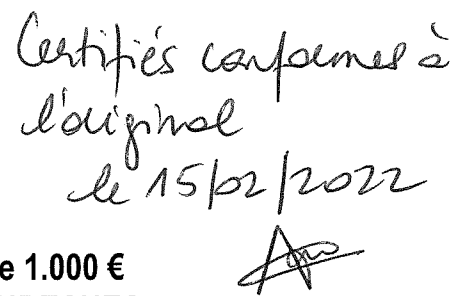 Certifiés conformes à
l'original
le 15/02/2022
e 1.000 €